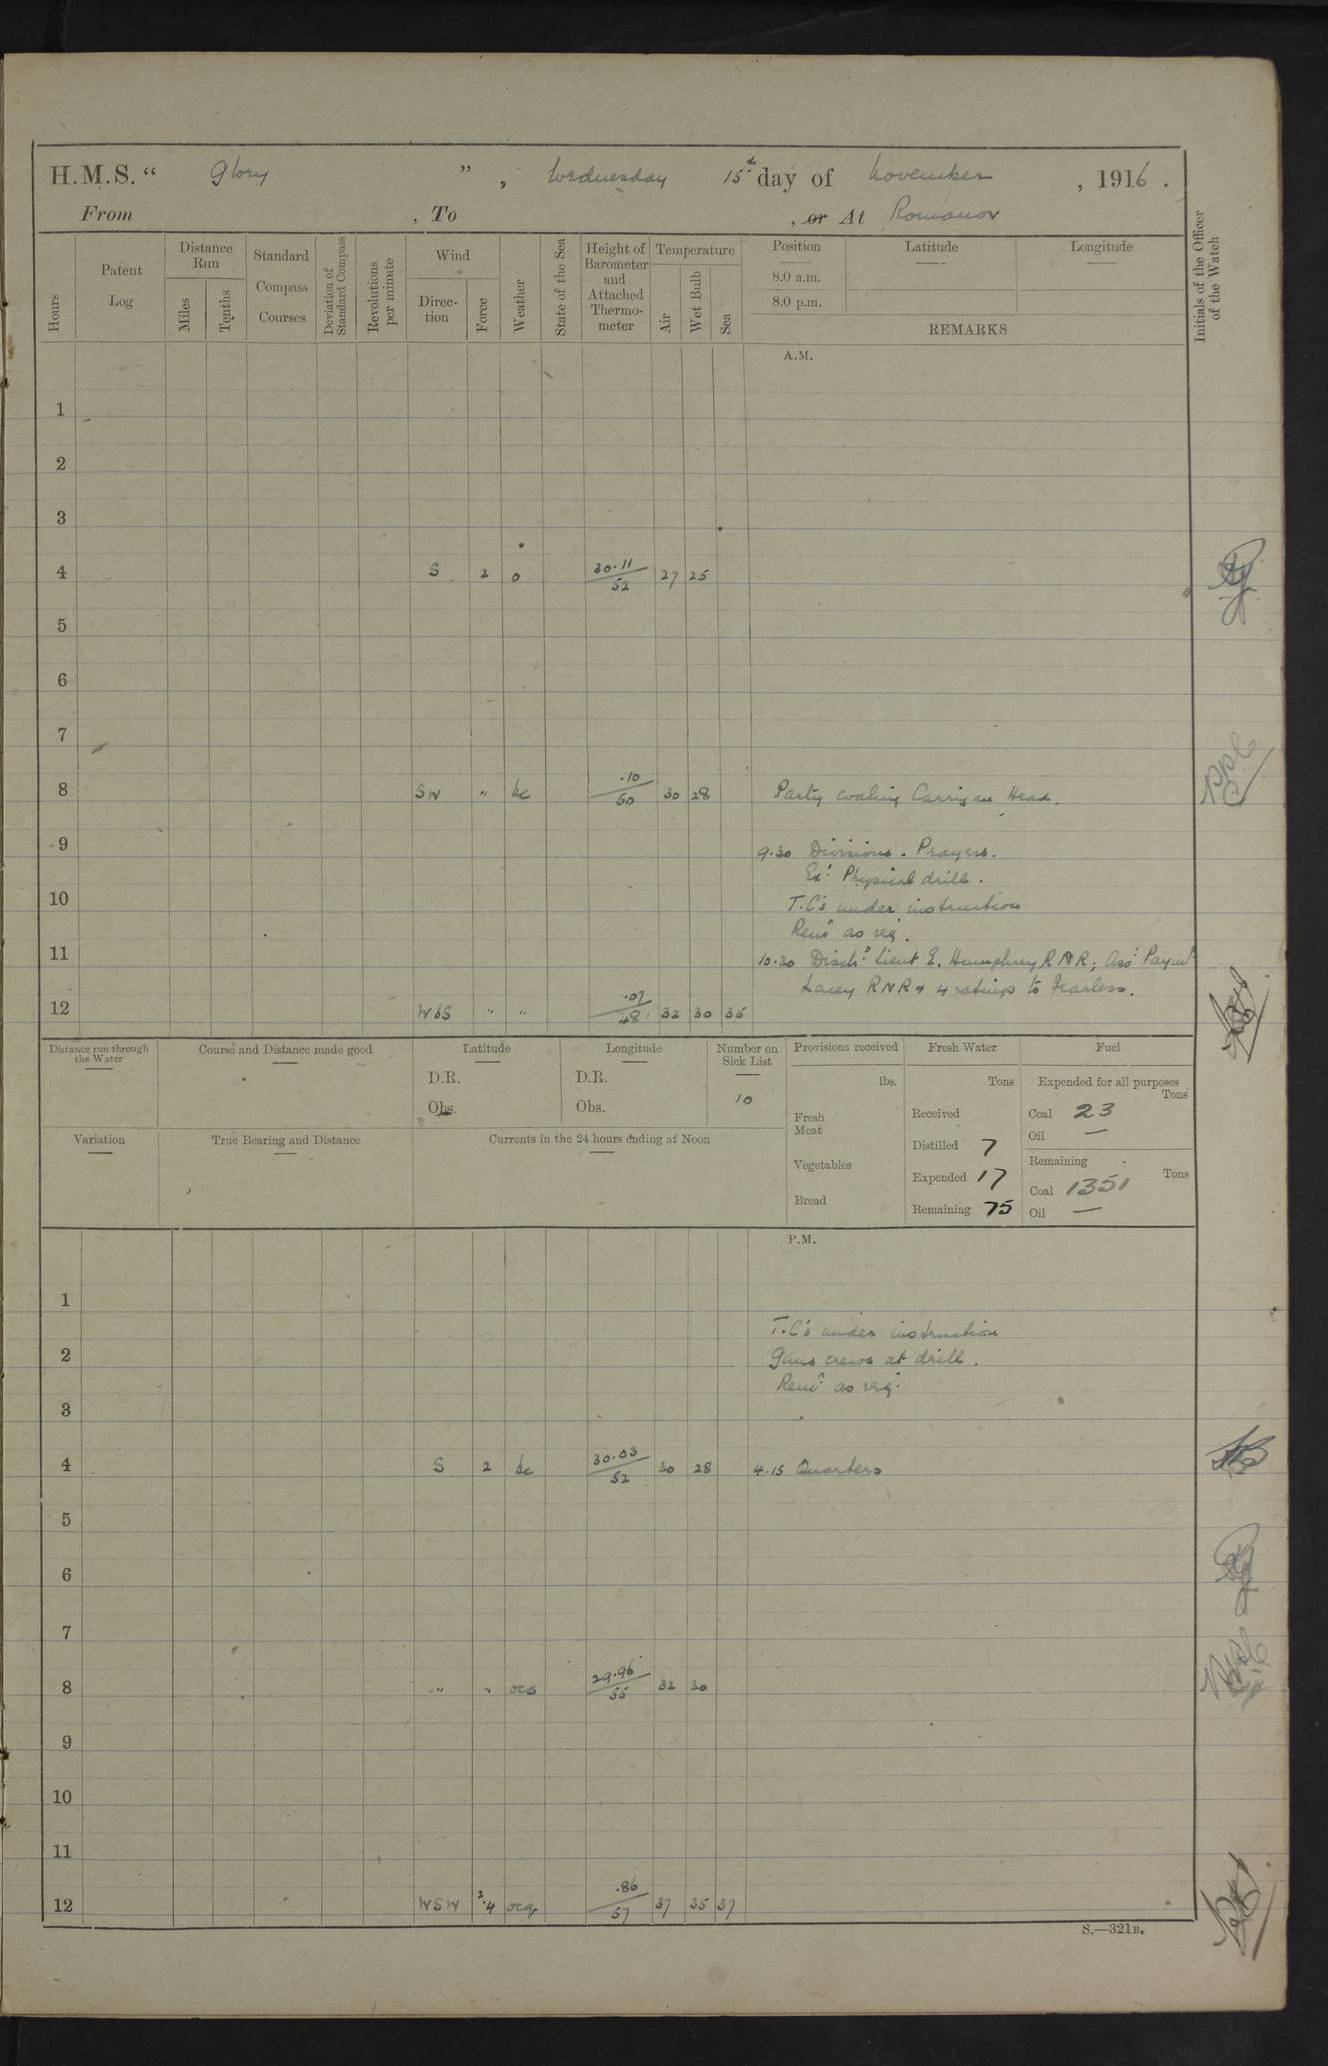 H.M.S. “ Glory ” , Wednesday 15th day of November , 1916 .
From , To , or At Romanov
Hours
Patent Log
Distance Run
Miles
Tenths
Standard Compass Courses
Deviation of Standard Compass
Revolutions per minute
Wind
Direction
Force
Weather
State of the Sea
Height of Barometer and Attached Thermometer
Temperature
Air
Wet Bulb
Sea
Position
8.0 a.m.
8.0 p.m.
Latitude
Longitude
REMARKS
Initials of the Officer of the Watch
A.M.
1
2
3
4 S 2 o 30.11/52 27 25
5
6
7
8 SW " bc .10/50 30 28 Party coaling Carrigan Head.
9 9.30 Divisions. Prayers.
Exd Physical drill.
10 T.C's under instruction
Remr as req.
11 10.30 Dischd Lieut E. Humphrey RNR; Asst Paymr
Lacey RNR & 4 ratings to Fearless.
12 WbS " " .07/48 32 30 35
Distance run through the Water
Course and Distance made good
Latitude
D.R.
Obs.
Longitude
D.R.
Obs.
Number on Sick List
10
Provisions received
lbs.
Fresh Meat
Vegetables
Bread
Fresh Water
Tons
Received
Distilled 7
Expended 17
Remaining 75
Fuel
Expended for all purposes
Tons
Coal 23
Oil —
Remaining
Tons
Coal 1351
Oil —
Variation
True Bearing and Distance
Currents in the 24 hours ending at Noon
P.M.
1
T.C's under instruction
2 Guns crews at drill.
Remr as req.
3
4 S 2 bc 30.03/52 30 28 4.15 Quarters
5
6
7
8 " " ocs 29.96/55 32 30
9
10
11
12 WSW 2.4 ocq .86/57 37 35 37
S.—321B.